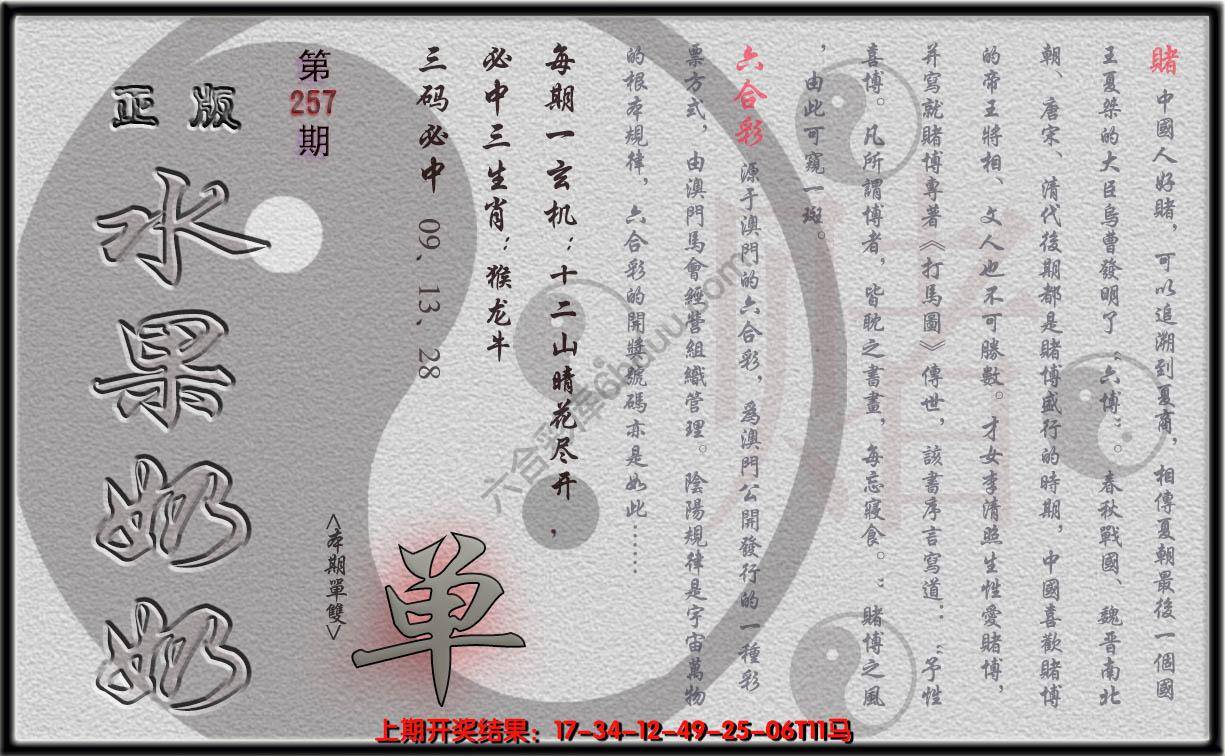 賭 中國人好賭，可以追溯到夏商，相傳夏朝最後一個國
王夏桀的大臣烏曹發明了“六博”。春秋戰國、魏晋南北
朝、唐宋、清代後期都是賭博盛行的時期，中國喜歡賭博
的帝王將相、文人也不可勝數。才女李清照生性愛賭博，
并寫就賭博專著《打馬圖》傳世，該書序言寫道：“予性
喜博。凡所謂博者，皆耽之書畫，每忘寢食。”賭博之風
，由此可窺一斑。
六合彩 源于澳門的六合彩，爲澳門公開發行的一種彩
票方式，由澳門馬會經營組織管理。陰陽規律是宇宙萬物
的根本規律，六合彩的開獎號碼亦是如此……
每期一玄机：十二山晴花尽开，
必中三生肖：猴龙牛
三码必中 09、13、28
第
257
期
正版
水果奶奶
<本期單雙>
单
六合彩库6hbuuu.com
上期开奖结果：17-34-12-49-25-06T11马